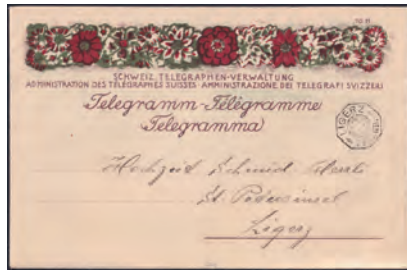 SCHWEIZ. TELEGRAPHEN-VERWALTUNG
ADMINISTRATION DES TÉLÉGRAPHES SUISSES - AMMINISTRAZIONE DEI TELEGRAFI SVIZZERI
Telegramm-Télégramme
(Telegramma)
LIGERZ
Hochzeit Schmid-
St. Petersinsel
Ligerz